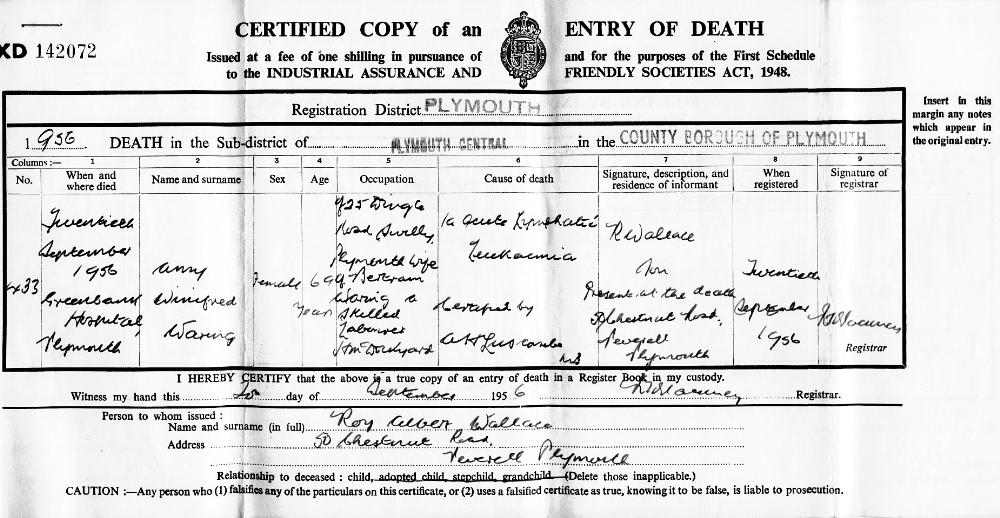 CERTIFIED COPY of an ENTRY OF DEATH
XD 142072
Issued at a fee of one shilling in pursuance of and for the purposes of the First Schedule
to the INDUSTRIAL ASSURANCE AND FRIENDLY SOCIETIES ACT, 1948.
Insert in this
margin any notes
which appear in
the original entry.
Registration District PLYMOUTH
1956 DEATH in the Sub-district of PLYMOUTH CENTRAL in the COUNTY BOROUGH OF PLYMOUTH
Columns :— 1 2 3 4 5 6 7 8 9
No. When and where died Name and surname Sex Age Occupation Cause of death Signature, description, and residence of informant When registered Signature of registrar
433
Twentieth
September
1956
Greenbank
Hospital
Plymouth
Amy
Winifred
Waring
Female
69
Years
of 25 Dingle
Road Swilly,
Plymouth wife
of Bertram
Waring a
Skilled
Labourer
HM Dockyard
1a Acute Lymphatic
Leukaemia
Certified by
A H Luscombe
MB
R Wallace
Son
Present at the death
50 Chestnut Road,
Peverell
Plymouth
Twentieth
September
1956
Registrar
I HEREBY CERTIFY that the above is a true copy of an entry of death in a Register Book in my custody.
Witness my hand this 20 day of September 1956 Registrar.
Person to whom issued :
Name and surname (in full) Roy Albert Wallace
Address 50 Chestnut Road,
Peverell Plymouth
Relationship to deceased : child, adopted child, stepchild, grandchild. (Delete those inapplicable.)
CAUTION :—Any person who (1) falsifies any of the particulars on this certificate, or (2) uses a falsified certificate as true, knowing it to be false, is liable to prosecution.